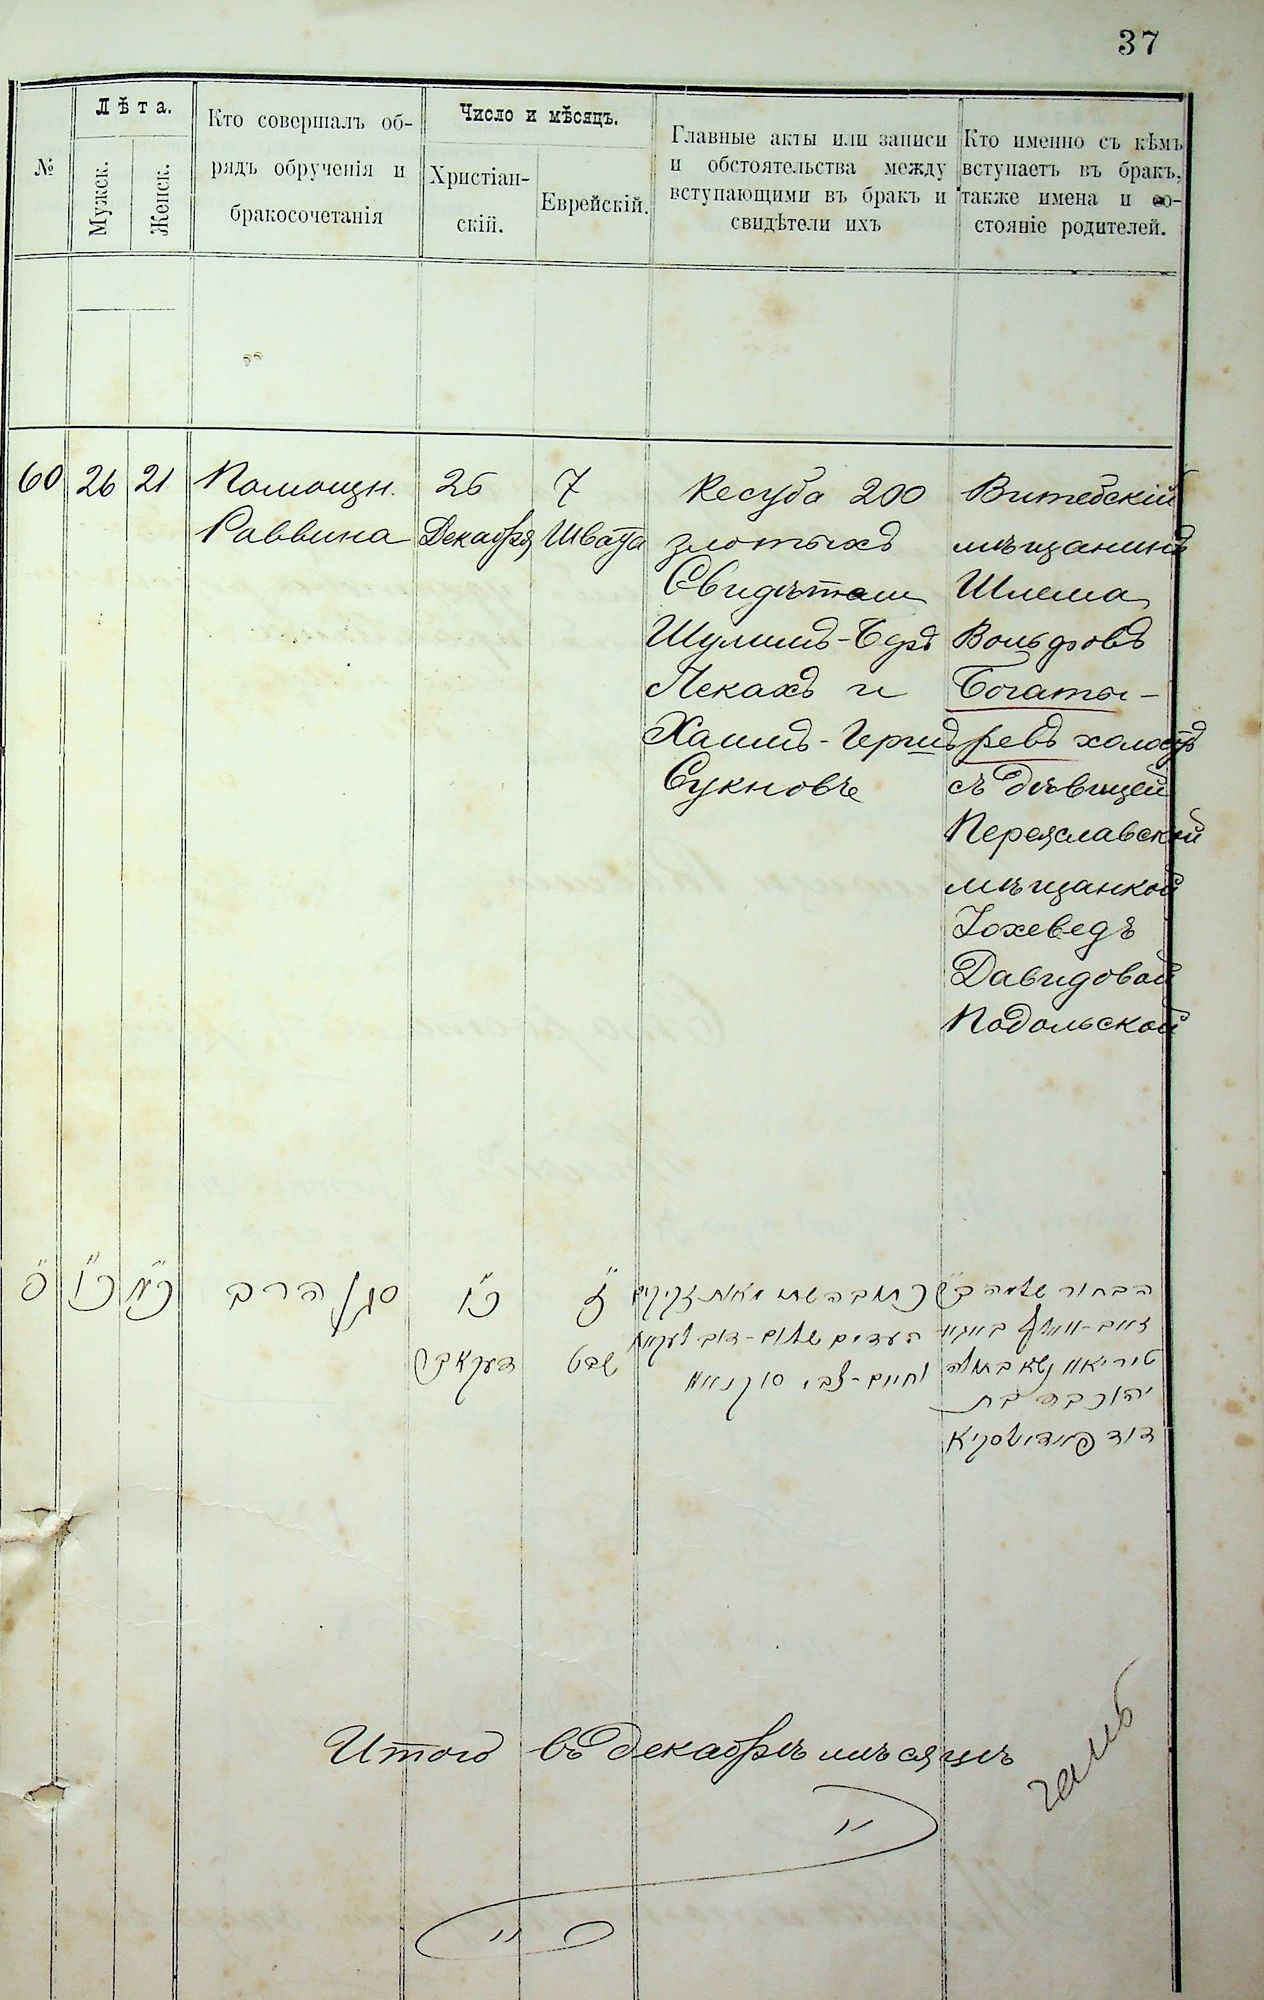 37
№
Лѣта.
Мужск.
Женск.
Кто совершалъ об-
рядъ обрученія и
бракосочетанія
Число и мѣсяцъ.
Христіан-
скій.
Еврейскій.
Главные акты или записи
и обстоятельства между
вступающими въ бракъ и
свидѣтели ихъ
Кто именно съ кѣмъ
вступаетъ въ бракъ,
также имена и со-
стояніе родителей.
60
26
21
Помощн.
Раввина
26
Декабря
7
Швата
Кесуба 200
злотыхъ
Свидѣтели
Шулимъ-Беръ
Лекахъ и
Хаимъ-Герш
Сукновъ
Витебскій
мѣщанинъ
Шлема
Вольфовъ
Богаты-
ревъ холостъ
съ дѣвицей
Переяславской
мѣщанкой
Іохеведъ
Давидовой
Подольской
ס
כ״ו
כ״א
סגן הרב
כ״ו
דעקאבר
ז
שבט
כתובה שתי מאות זקוקים
העדים שלום-דוב לעקאח
וחיים-צבי סוקנאוו
הבחור שלמה ב״ר
נשא בתולה
יוכבד בת
דוד פאדאלסקיא
Итого въ декабрѣ мѣсяцѣ